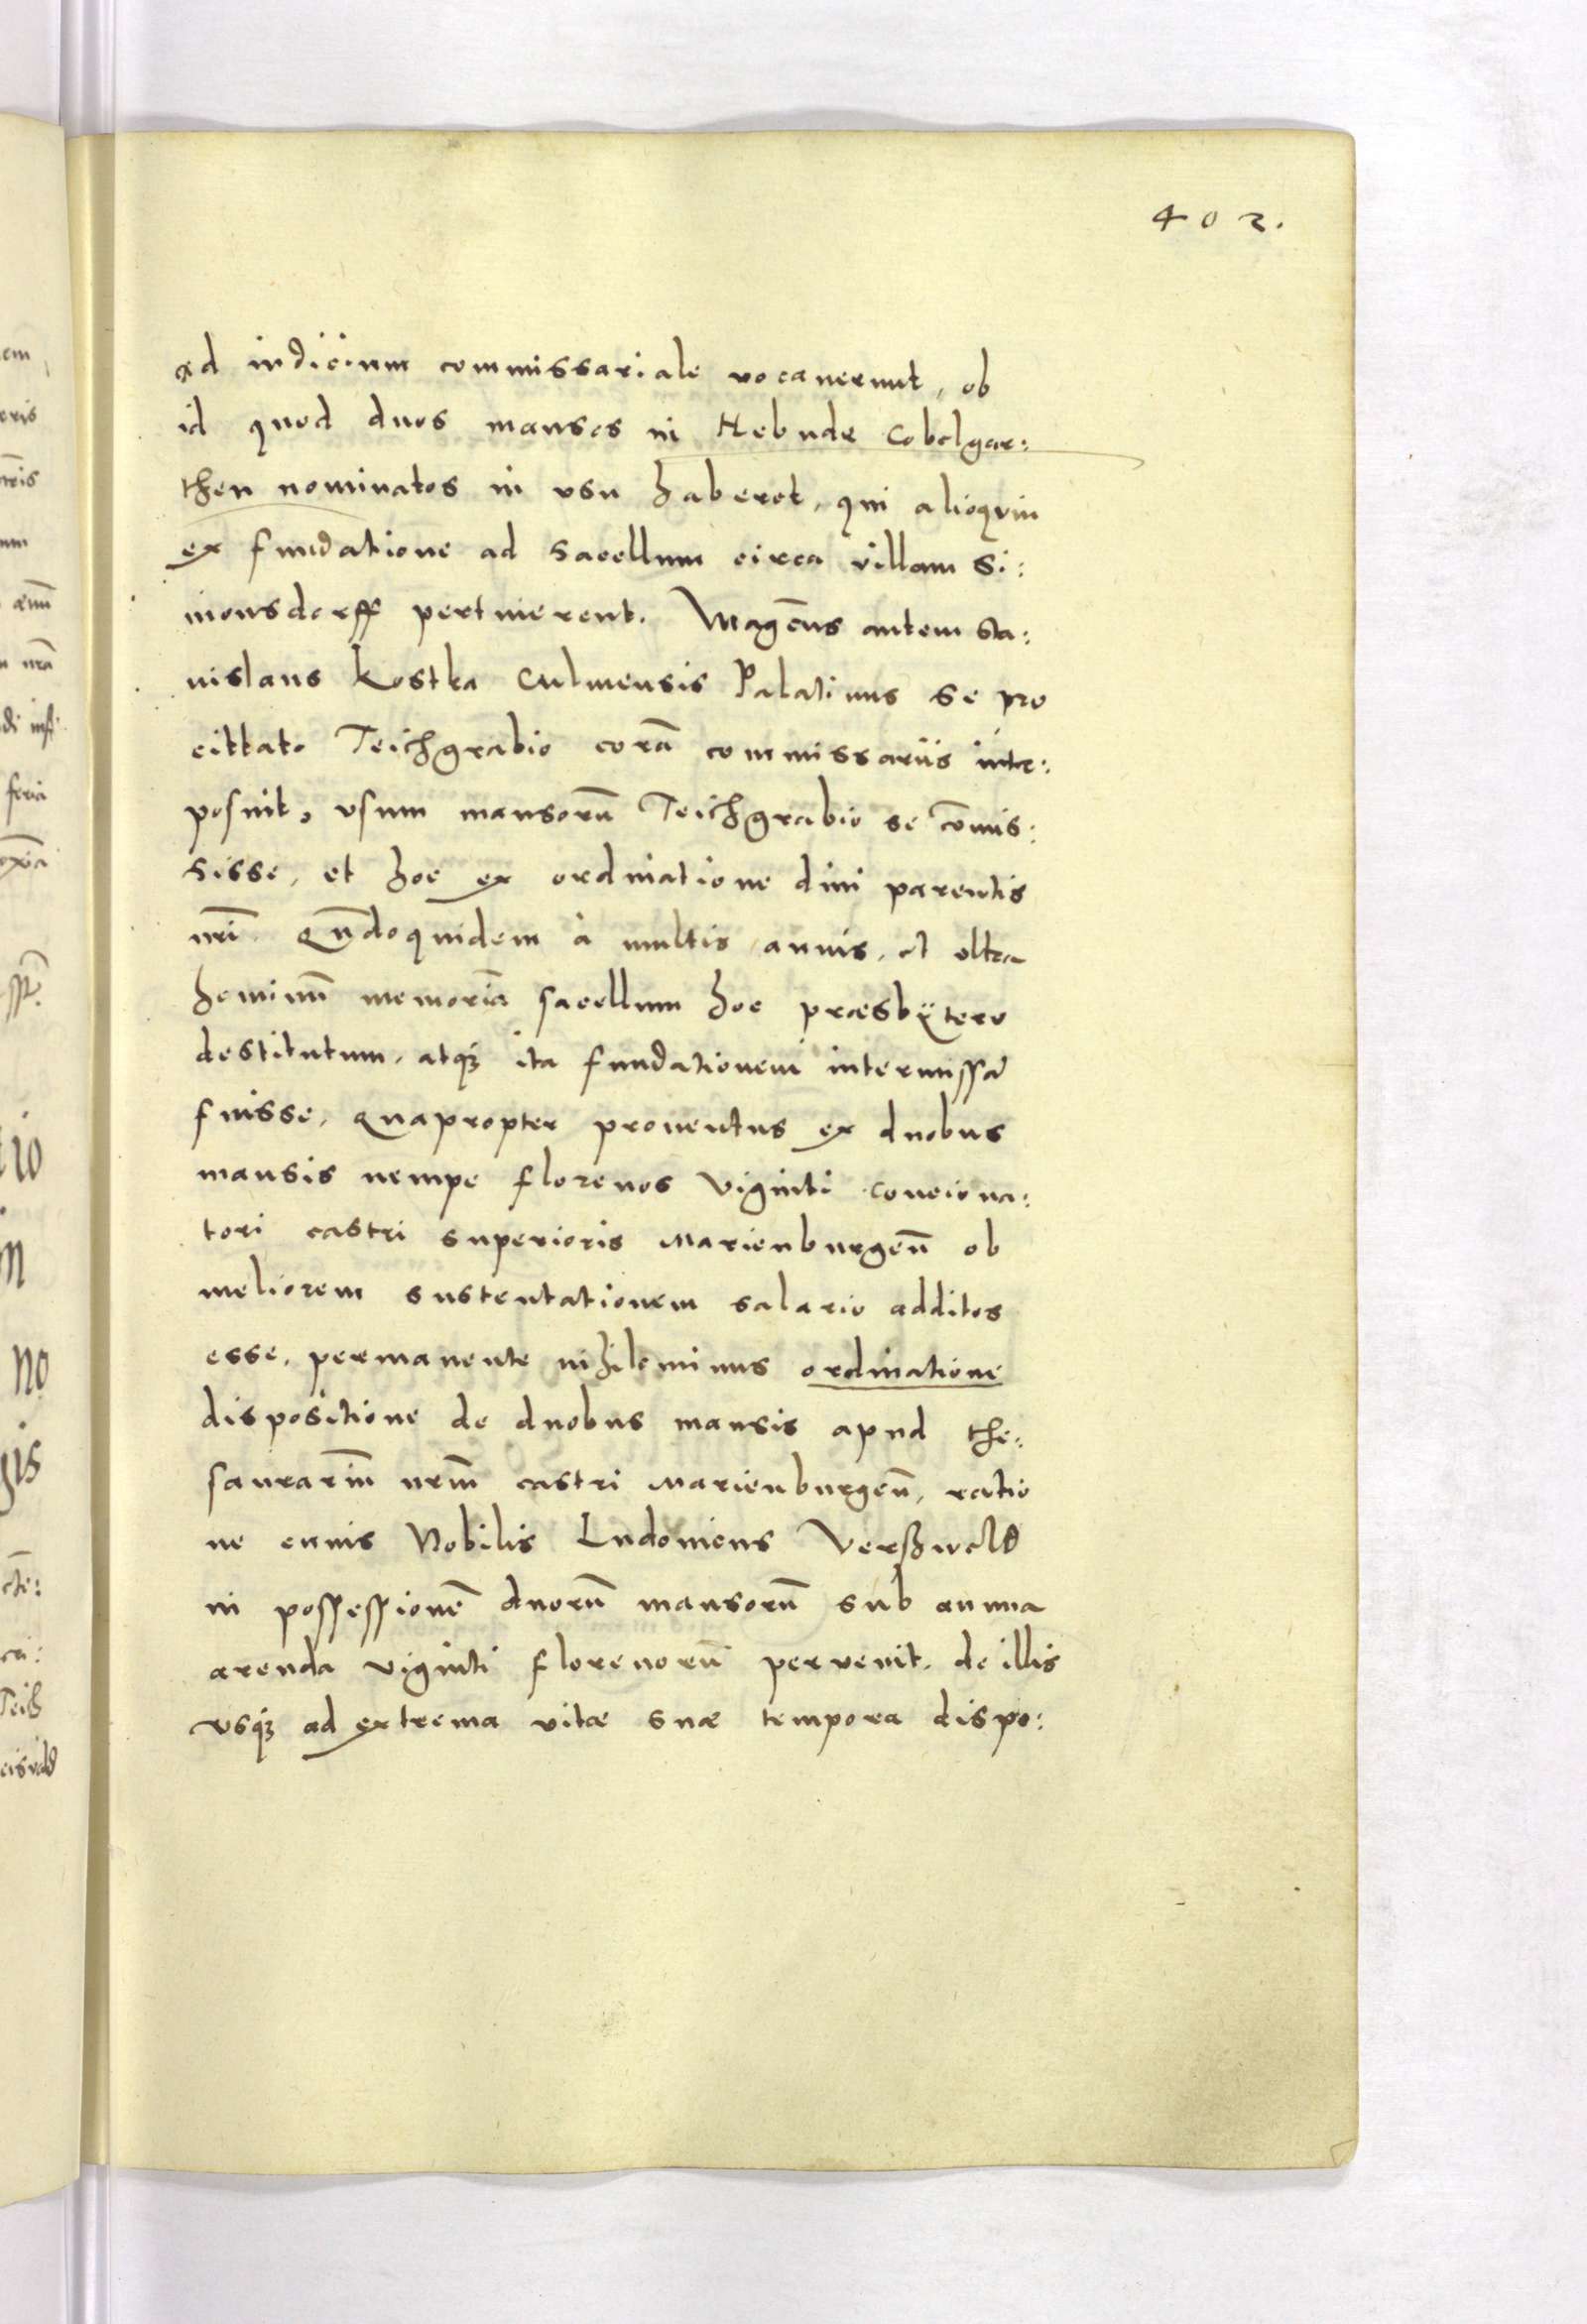 402.
ad iudicium commissariale vocaverunt, ob
id quod duos mansos in Hebude Cobelgar:
then nominatos in usu haberet, qui alioqvin
ex fundatione ad sacellum circa villam Si:
monsdorff pertinerent. Mag͠cus autem Sta:
nislaus Kostka Culmensis Palatinus se pro
cittato Teichgrabio corā commissariis inter:
posuit, usum mansorū Teichgrabio se cōmis:
sisse, et hoc ex ordinatione divi parentis
nr̄i. Qn̄doquidem à multis annis, et ultra
hominū memoriā sacellum hoc præsbÿtero
destitutum, atq₃ ita fundationem intermissā
fuisse, Quapropter proventus ex duobus
mansis nempe florenos viginti conciona:
tori castri superioris Marienburgeñ ob
meliorem sustentationem salario additos
esse, permanente nihilominus ordinatione
dispositione de duobus mansis apud the:
saurariū nr̄m castri Marienburgeñ, ratio
ne cuius Nobilis Ludovicus Verßwald
in possessionē duorū mansorū sub annua
arenda viginti florenorū pervenit, de illis
usq₃ ad extrema vitæ suæ tempora dispo: